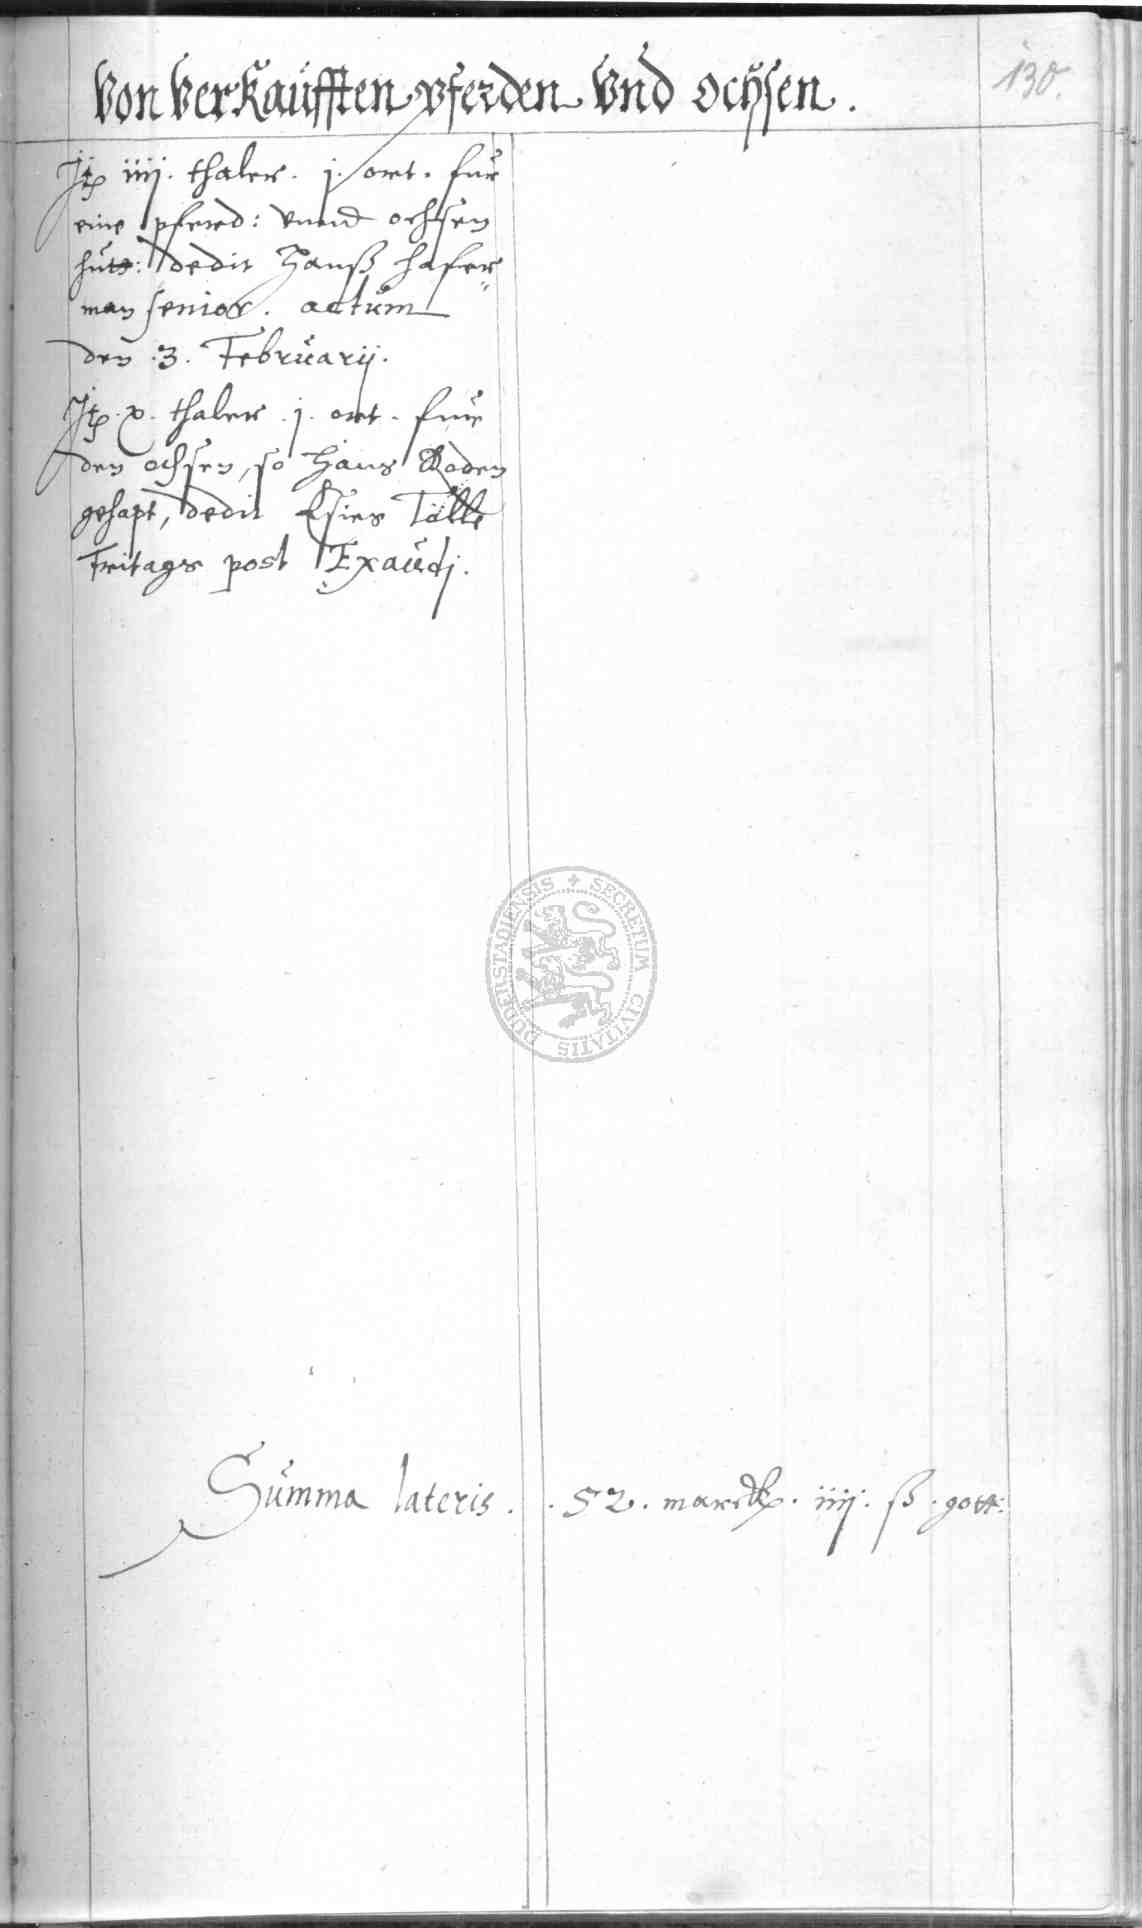 130.
Von Verkaufften pferden Vnd Ochsen.
Jtem iiij. thaler. j. ort. fur
eine pferd: vnnd ochsen
hutt: dedit Hanß Hafer=
man senior. actum
den .3. Februarij.
Jtem .x. thaler .j. ort. fur
den ochsen, so Hans Boden
gehapt, dedit Tolle
Fritags post Exaudj.
Summa lateris . . 52 . marck . iiij . ß . gott:
SECRETUM CIVITATIS DUDERSTADIENSIS